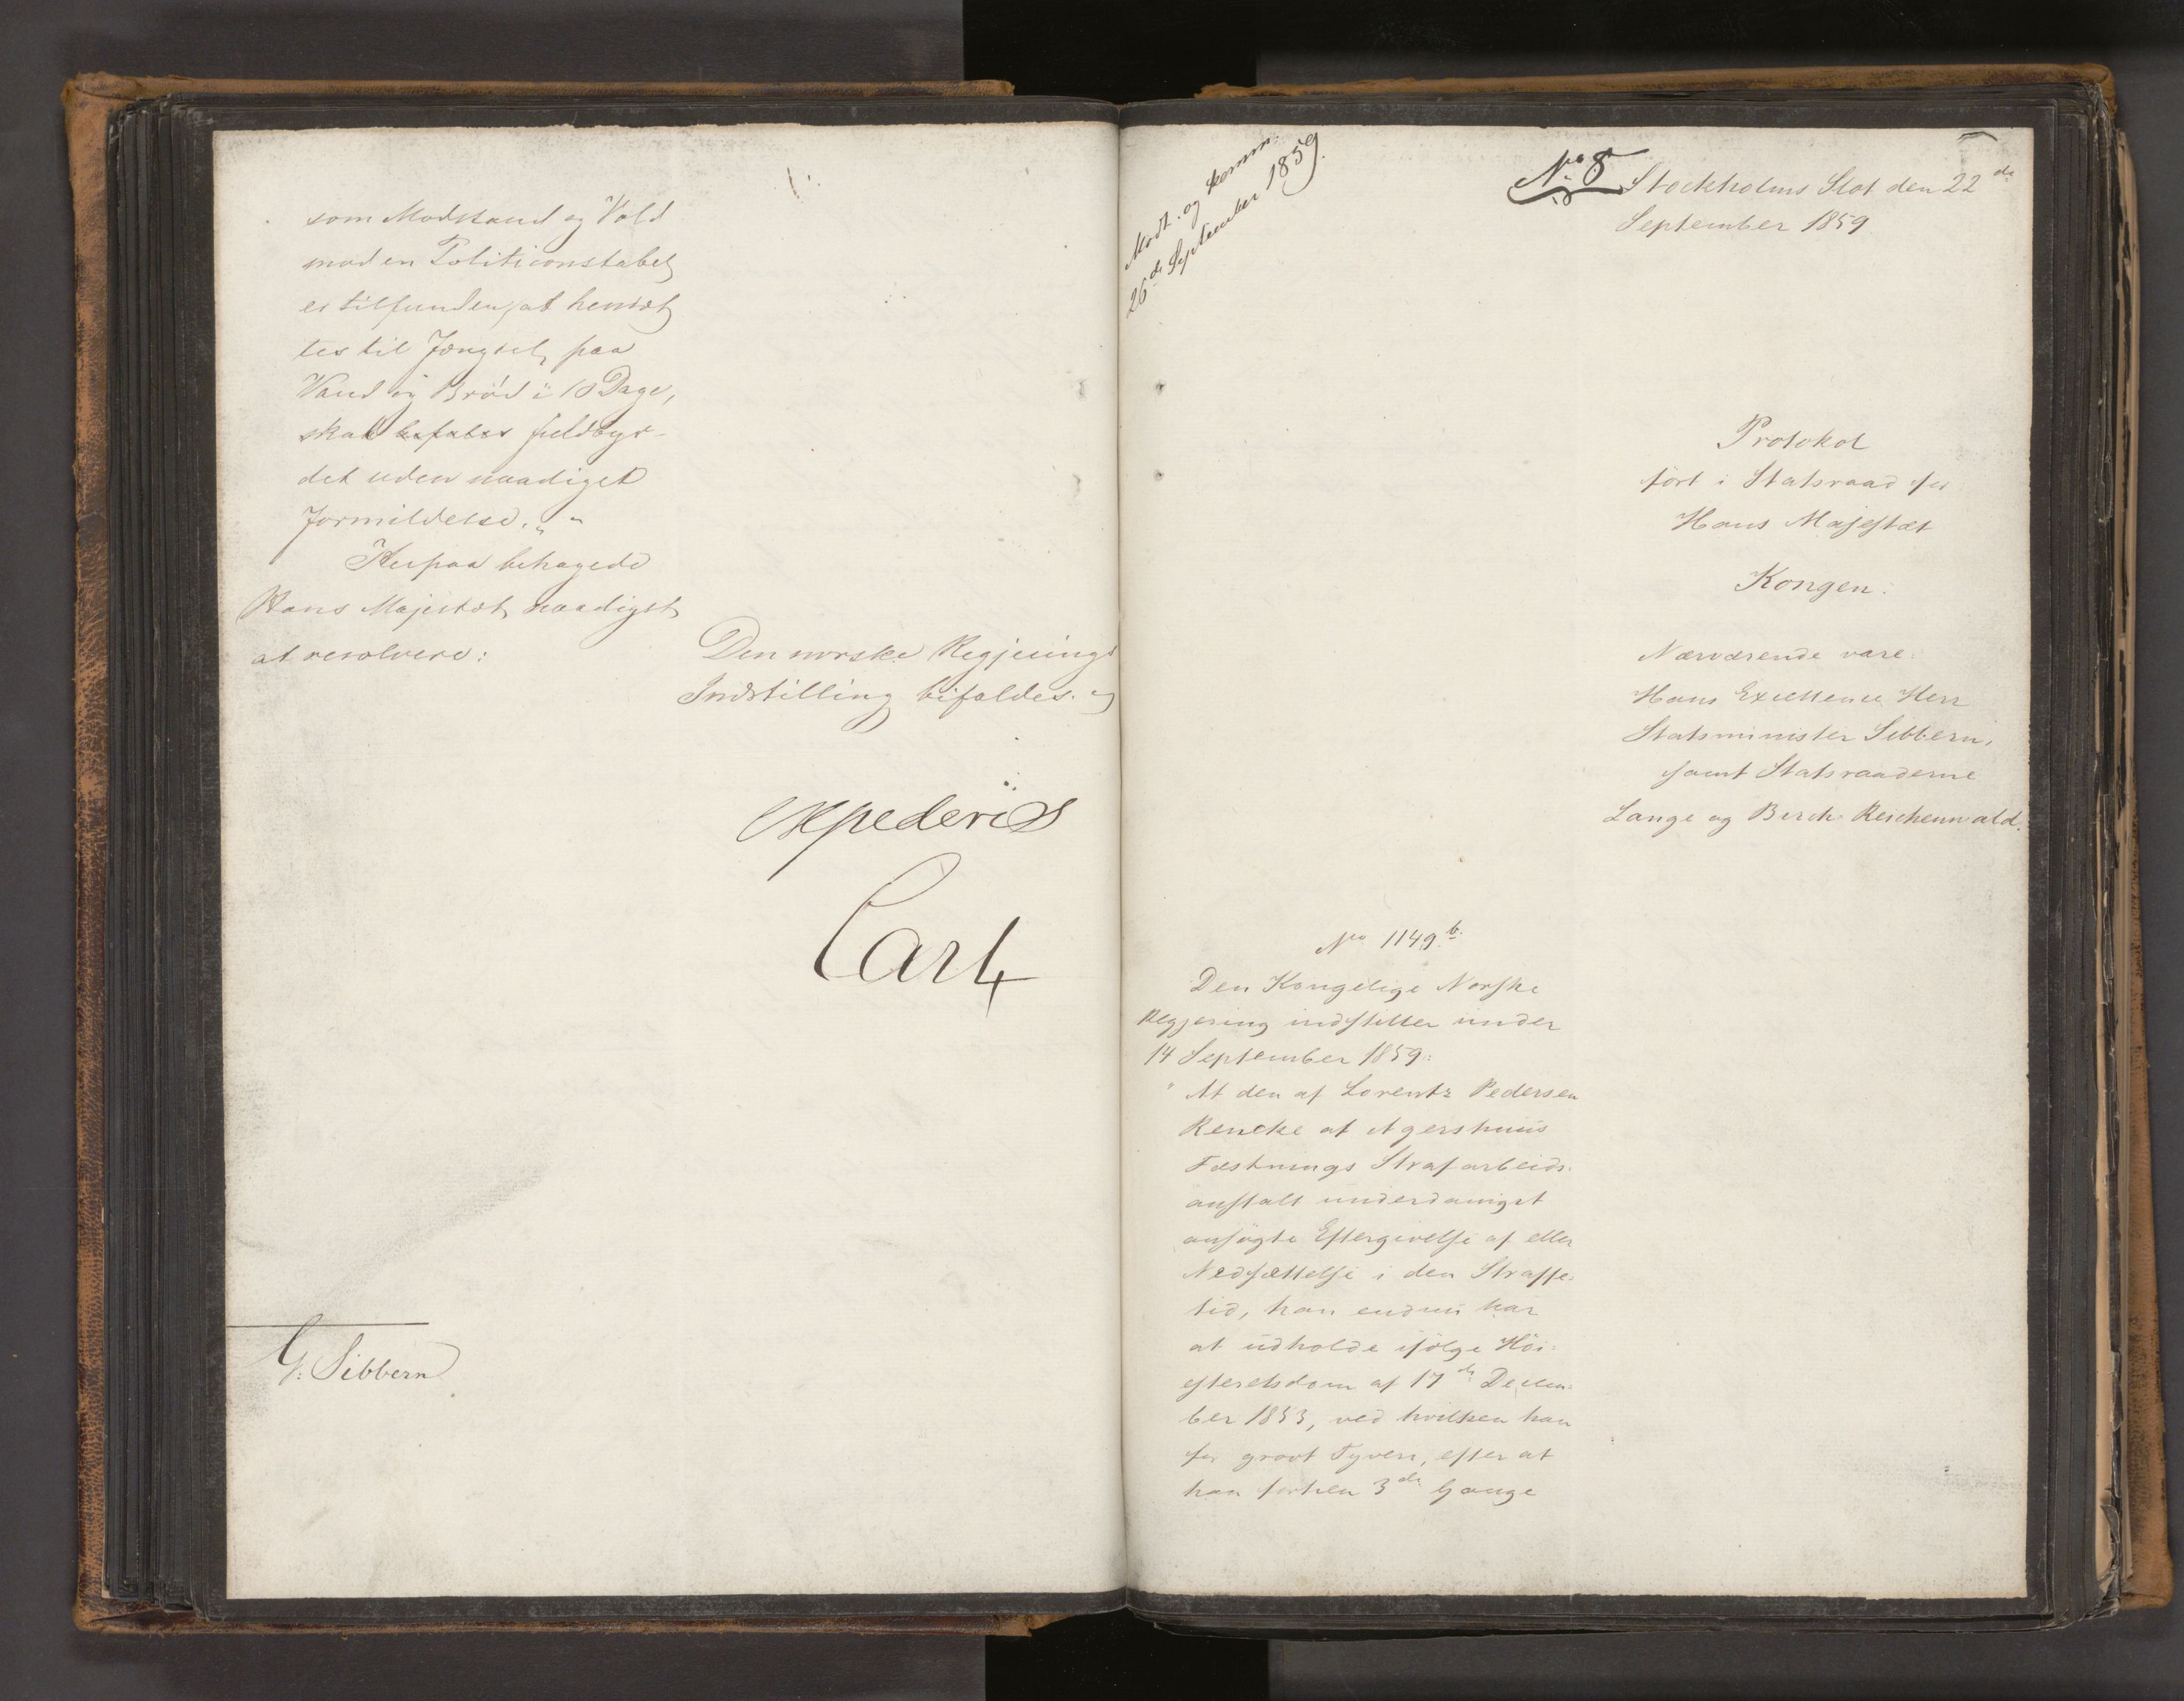 som Modstand og Vold
mod en Politiconstabel,
er tilfunden, at hensæt
tes til Fængsel paa
Vand og Brød i 10 Dage,
skal befales fuldbyr-
det uden naadigst
Formildelse. „ „
Herpaa behagede
Hans Majestæt naadigst
at resolvere:
Den norske Regjerings
Indstilling bifaldes.
expederes
Carl
G. Sibbern
Modt. og komm:
26de September 1859.
No 8
Stockholms Slot den 22de
September 1859
Protokol
ført i Statsraad for
Hans Majestæt
Kongen.
Nærværende vare:
Hans Excellence Herr
Statsminister Sibbern,
samt Statsraaderne
Lange og Birch-Reichenwald.
No 1149 b.
Den Kongelige Norske
Regjering indstiller under
14 September 1859:
" At den af Lorentz Pedersen
Rencke af Agershuus
Fæstnings Strafarbeids-
anstalt underdanigst
ansøgte Eftergivelse af eller
Nedsættelse i den Straffe-
tid, han endnu har
at udholde ifølge Høi-
esteretsdom af 17de Decem-
ber 1853, ved hvilken han
for grovt Tyveri, efter at
han forhen 3de Gange